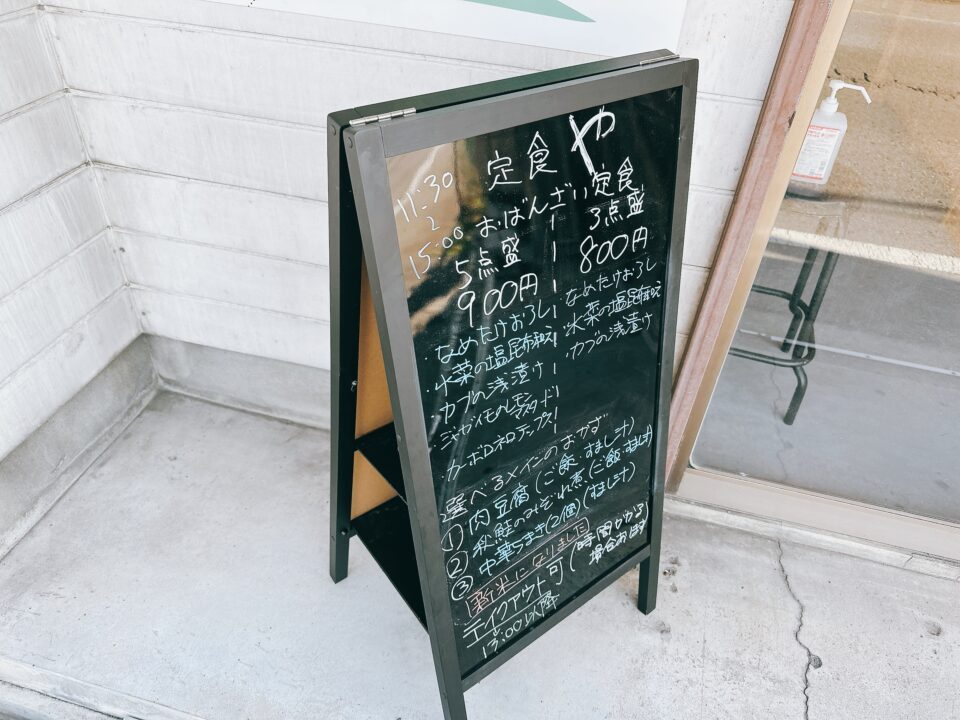 定食や
11:30
〜
15:00
おばんざい定食
5点盛
900円
・なめたけおろし
・水菜の塩昆布和え
・カブの浅漬け
・ジャガイモのレモンマスタード
・カーボロネロチップス
3点盛
800円
・なめたけおろし
・水菜の塩昆布和え
・カブの浅漬け
選べるメインのおかず
① 肉豆腐(ご飯・すまし汁)
② 秋鮭のみぞれ煮(ご飯・すまし汁)
③ 中華ちまき(2個)(すまし汁)
新米になりました
テイクアウト可(時間かかる場合あります)
13:00以降